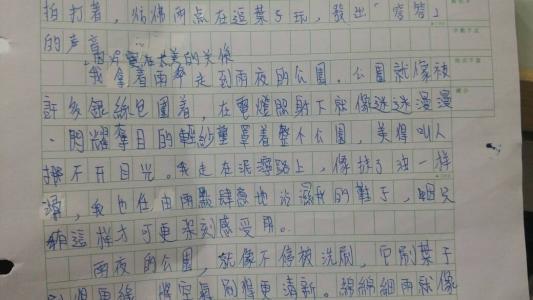 拍打著，彷彿雨点在逗葉子玩，發出「窸答」
的声音
因為實在太美的关係
我拿着雨傘走到雨夜的公園。公園就像被
許多銀線包圍着，在電燈照射下就像迷迷漫漫
、閃耀奪目的輕紗籠罩着整个公園，美得叫人
挪不开目光。我走在泥濘路上，像抹了油一样
滑，我也任由雨點肆意地沾濕我的鞋子，
這樣才可更深刻感受用。
雨夜的公園，就像不停被洗刷，叶子
得更綠，將空氣刷得更清新。綿綿細雨就像